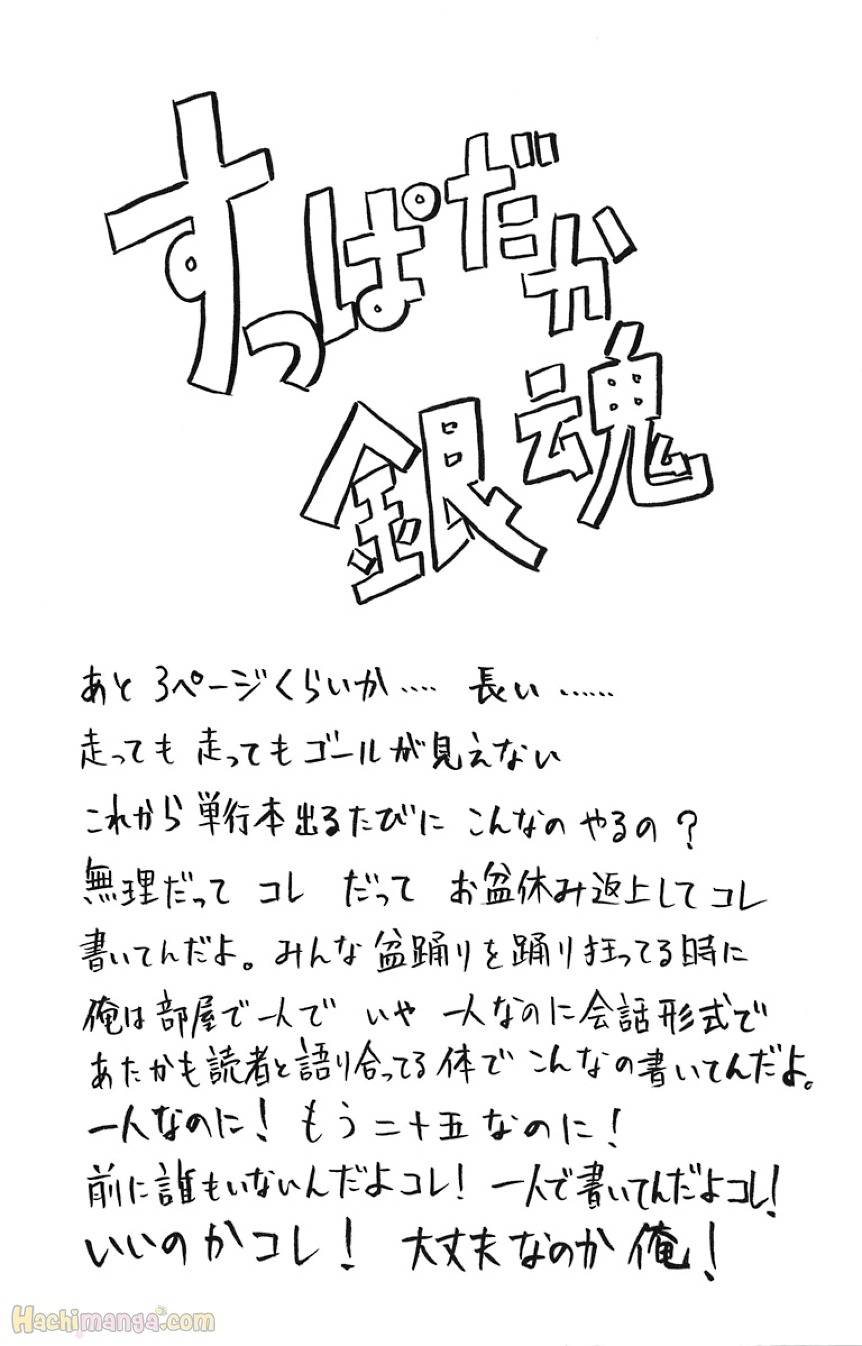 すっぱだか
銀魂
あと 3ページくらいか‥‥ 長い ‥‥‥
走っても 走ってもゴールが見えない
これから 単行本出るたびに こんなの やるの?
無理だって コレ だって お盆休み返上してコレ
書いてんだよ。みんな 盆踊りを踊り狂ってる時に
俺は部屋で一人で いや 一人なのに会話形式で
あたかも読者と語り合ってる体で こんなの書いてんだよ。
一人なのに! もう二十五なのに!
前に誰もいないんだよコレ! 一人で書いてんだよコレ!
いいのかコレ! 大丈夫なのか俺!
Hachimanga.com